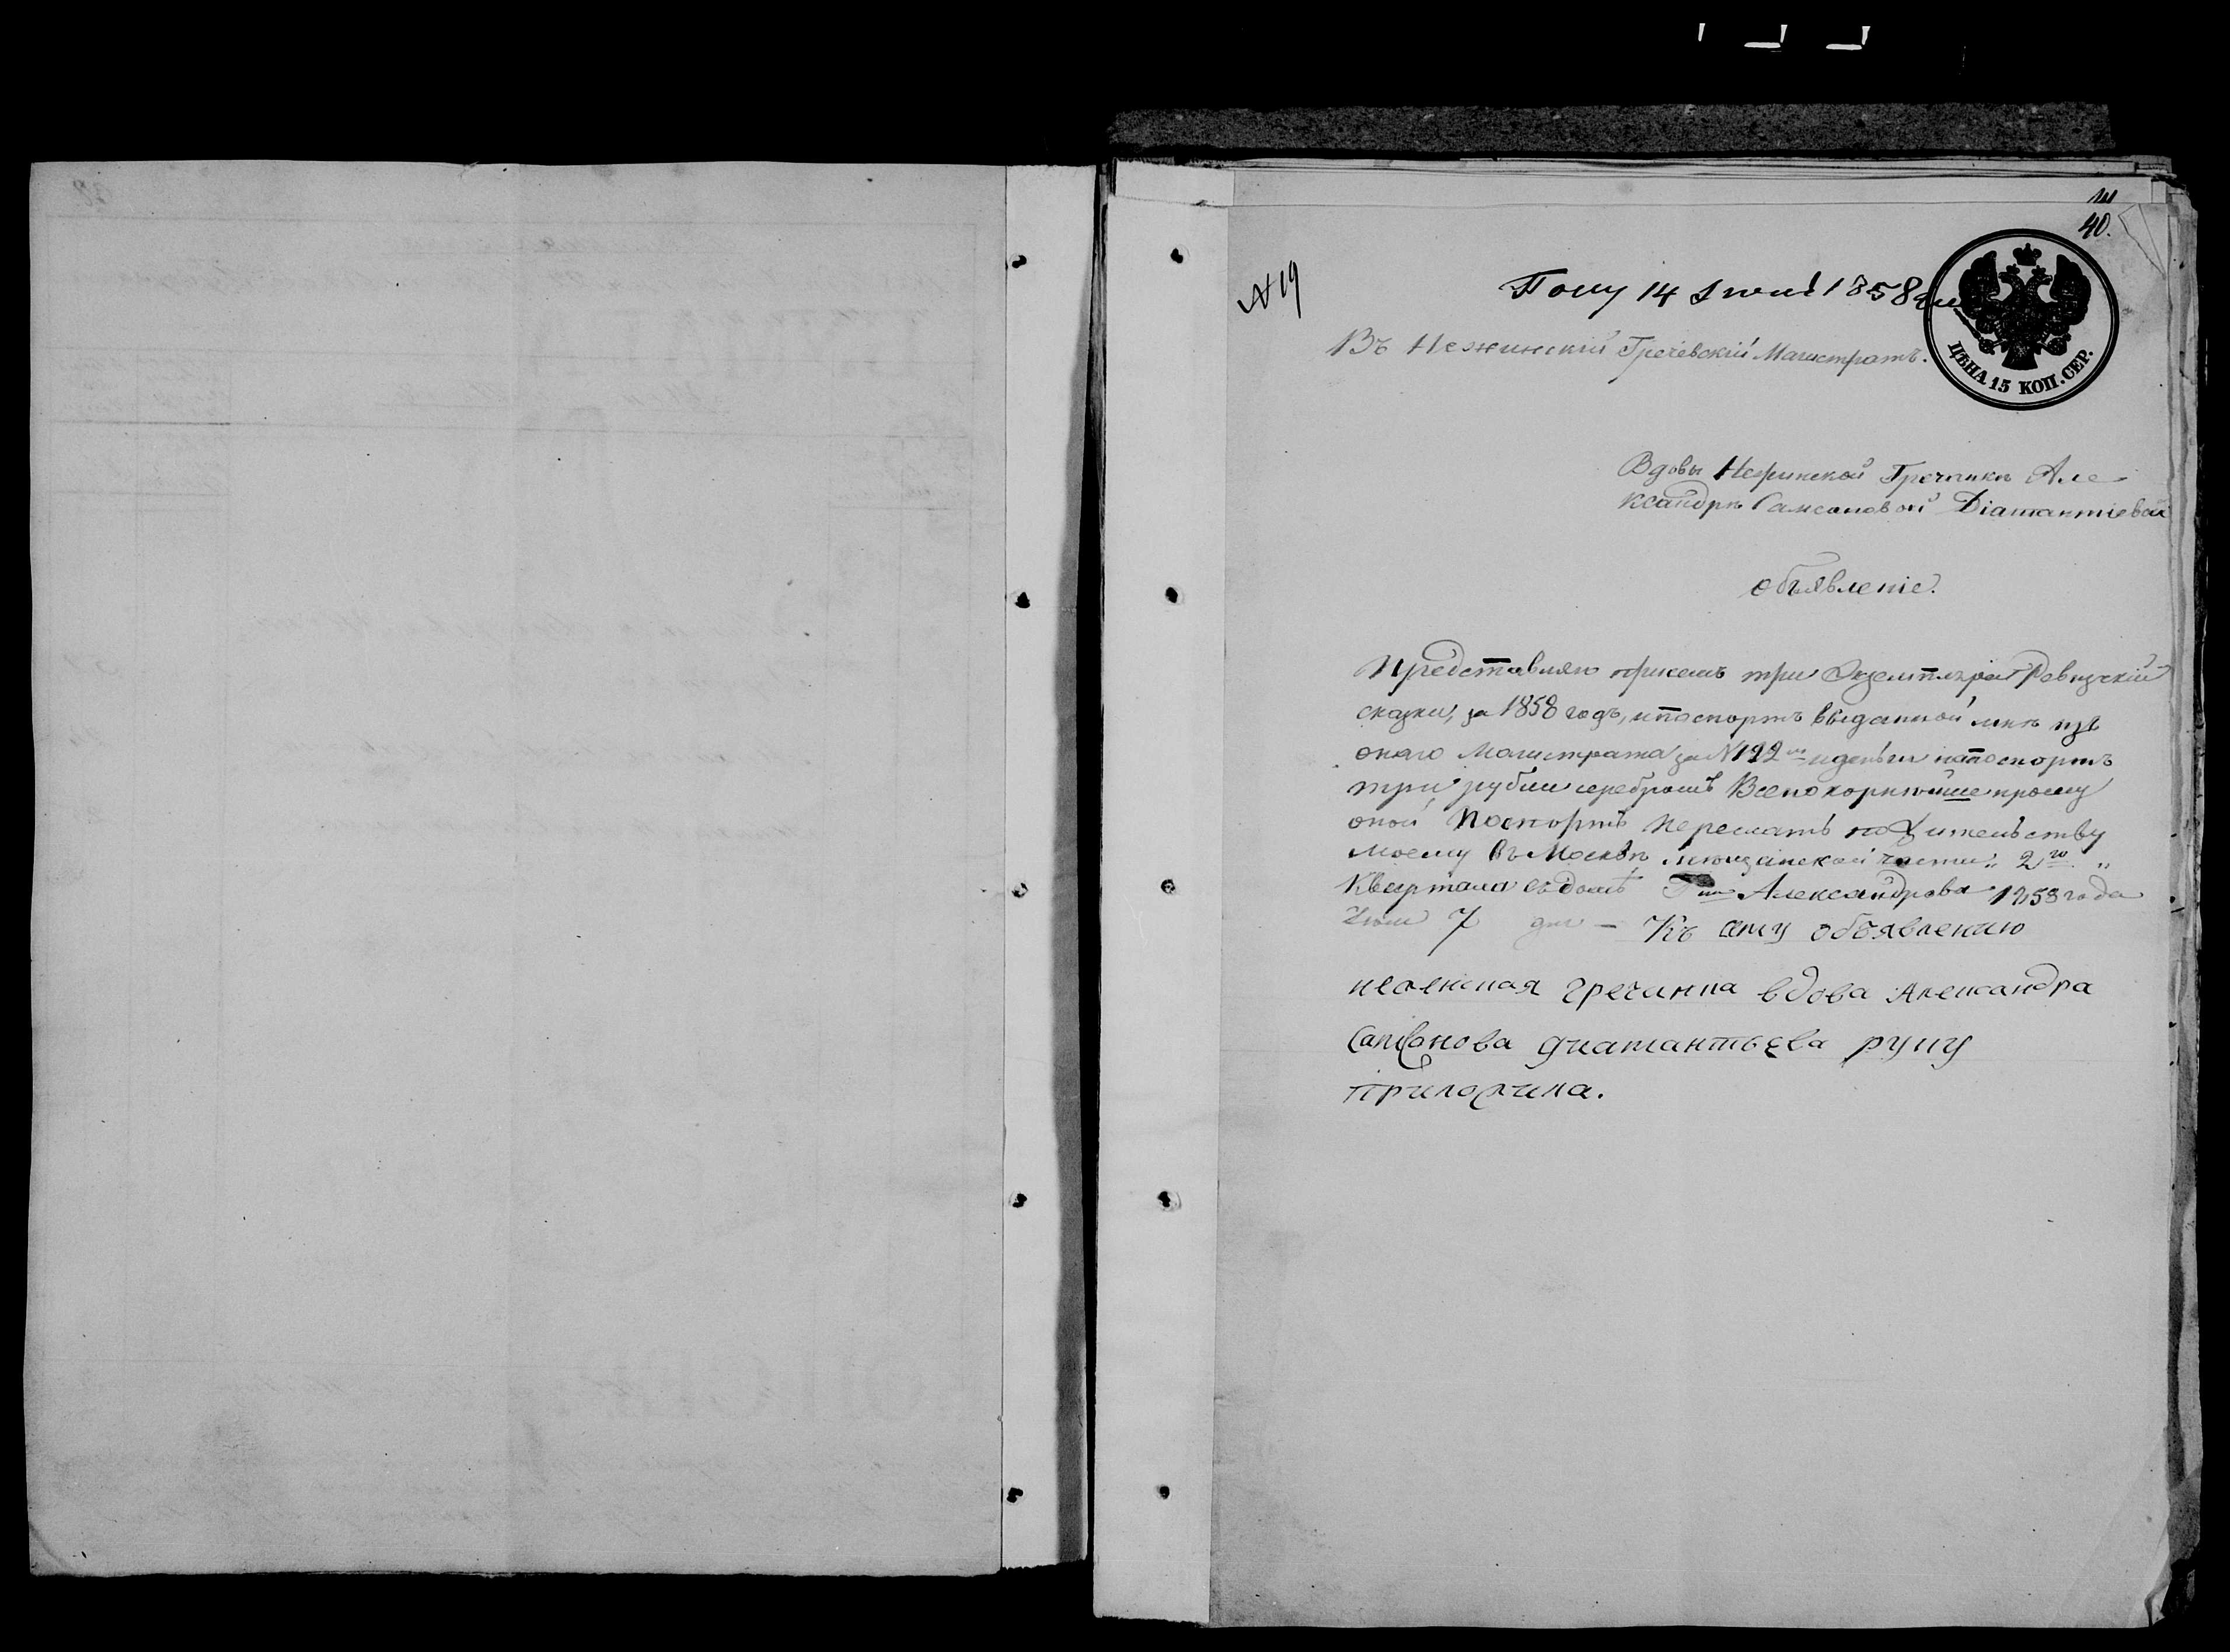 40.
N 19
Полу 14 Июня 1858 г.
Въ Нежинскій Греческій Магистратъ.
ЦѢНА 15 КОП. СЕР.
Вдовы Нежинской Гречанки Але
ксандры Самсоновой Діамантіевой
объявленіе.
Представляю присемъ три Экземпляра Ревизскій
сказки, за 1858 годъ, и паспортъ выданной мнѣ изъ
онаго Магистрата за N 122 и деньги на поспортъ
три рубли серебромъ Всепокорнѣйше прошу
оной Поспортъ переслать по жительству
моему въ Москвѣ мющанской части „ 2го „
Квартала въ домѣ Г Александрова 1858 года
Июня 7 дня – Къ сему объявлению
неженская гречинка вдова Александра
Самсонова диамантьева руку
приложила.